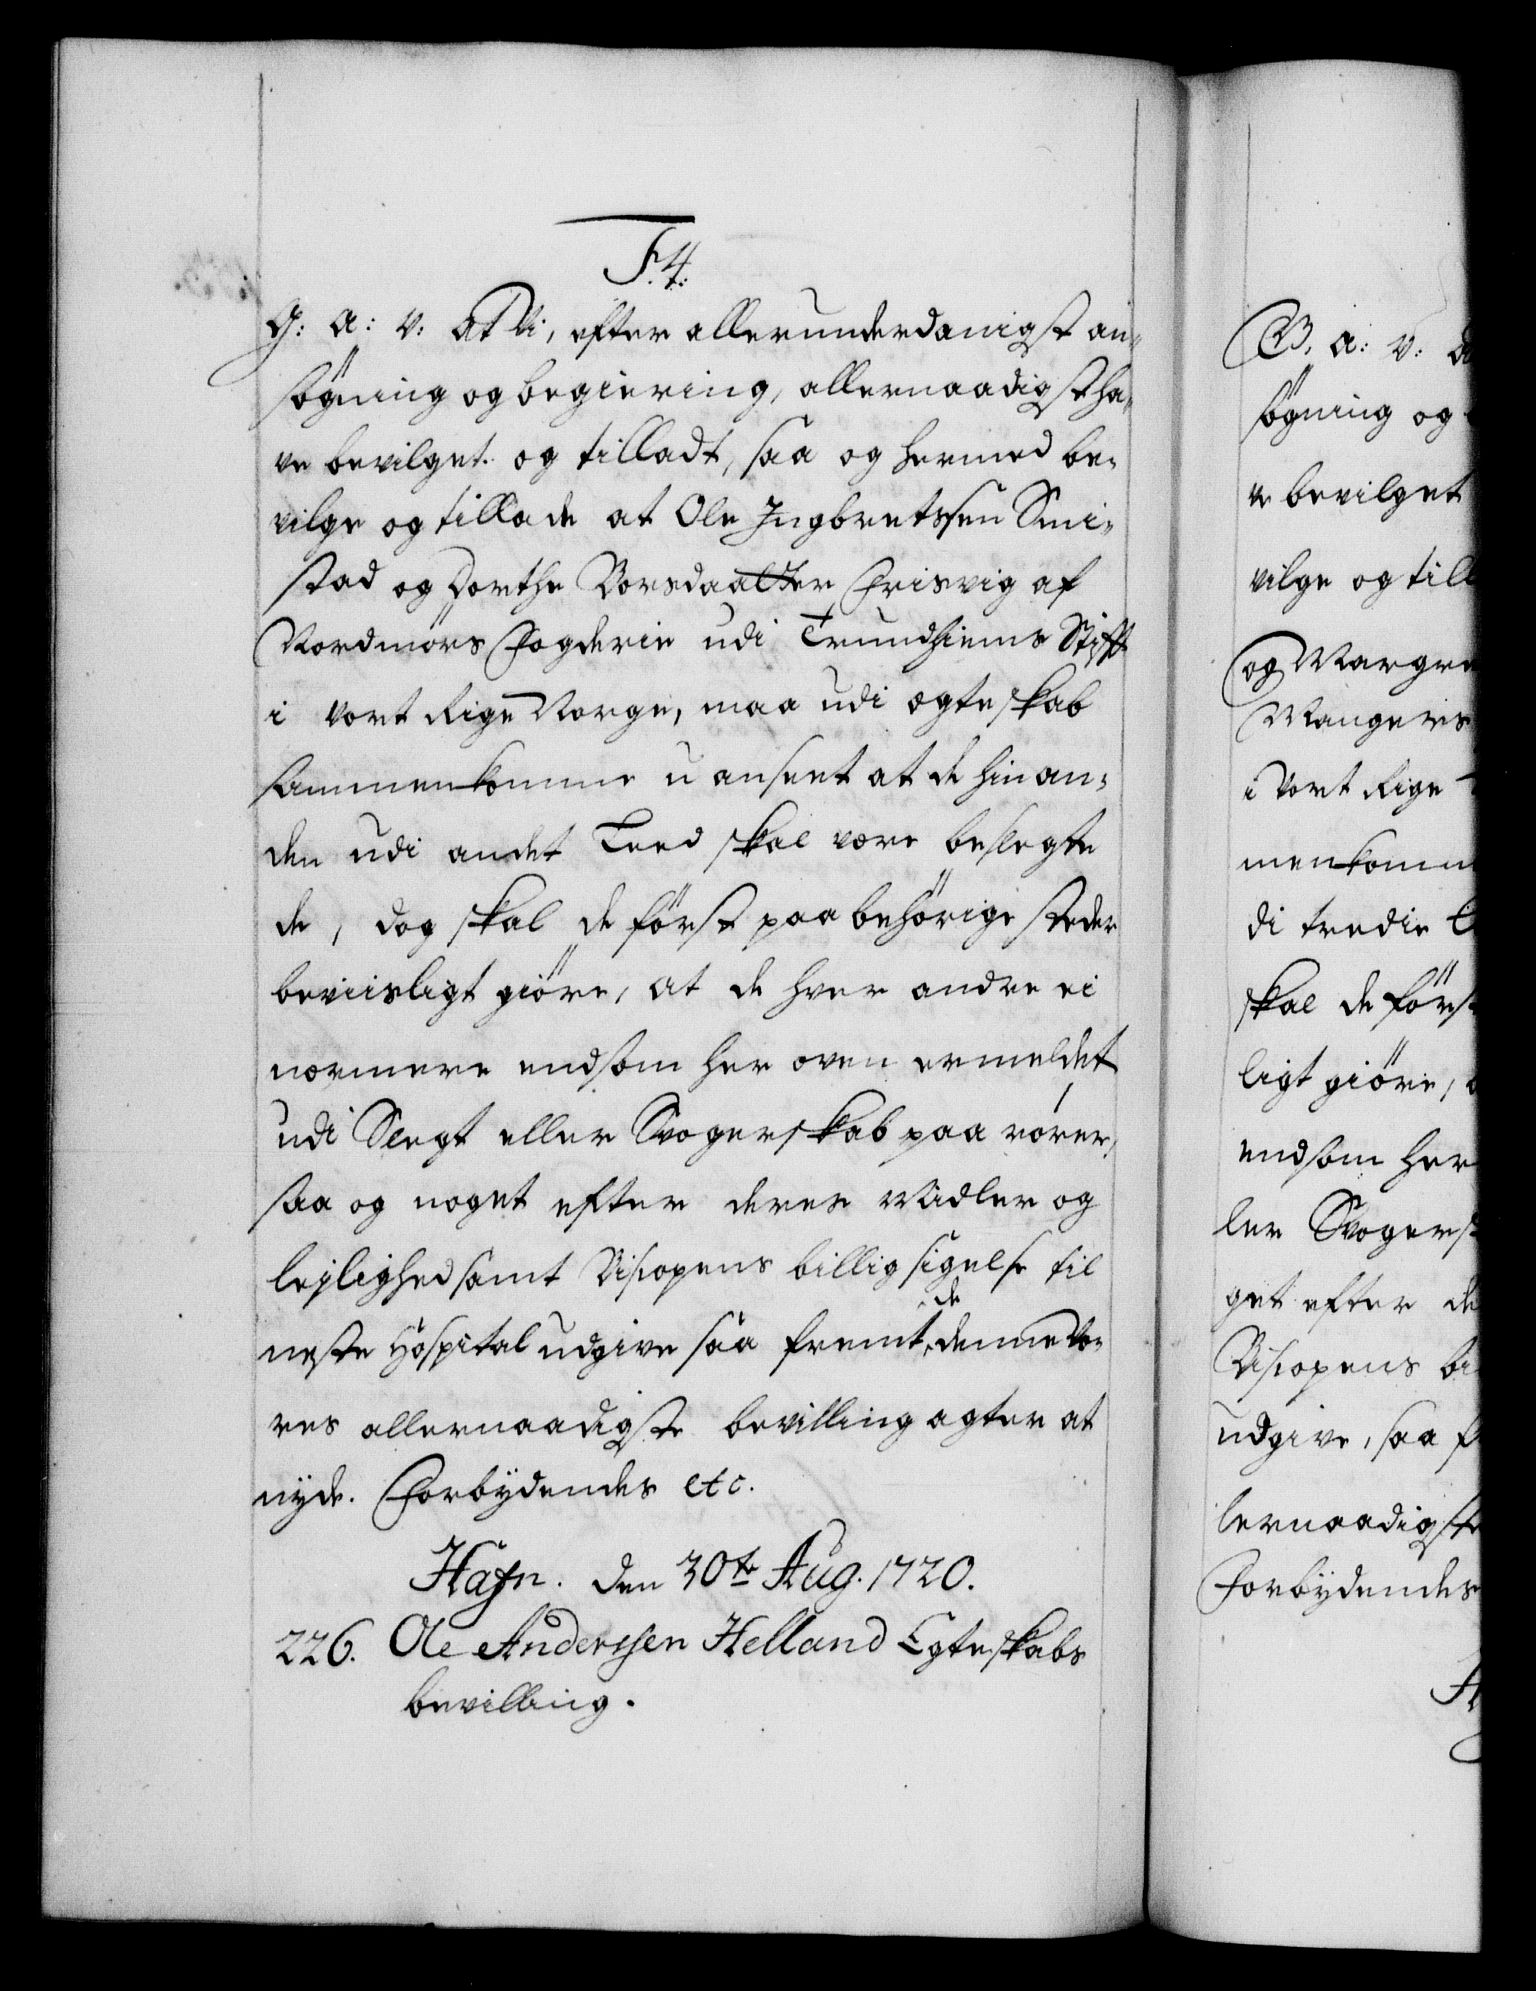 F.4.
G: a: v: At Vi, efter allerunderdanigst an¬
søgning og begiering, allernaadigst ha¬
ve bevilget og tilladt, saa og hermed be¬
vilge og tillade at Ole Ingbretssen Smi¬
stad og Dorthe Rorsdaatter Frisvig af
Nordmørs Fogderie udi Trundhiems Stift
i vort Rige Norge, maa udi ægteskab
sammenkomme uanseet at de hinan¬
den udi andet Leed skal være beslegte
de, dog skal de først paa behørige steder
beviisligt giøre, at de hver andre ei
nærmere endsom her oven ermeldet
udi Slegt eller Svogerskab paarører,
saa og noget efter deres Midler og
lejlighed samt Biscopens billigsigelse til
neste Hospital udgive saa fremt de denne Vo¬
res allernaadigste bevilling agter at
nyde. Forbydendes etc.
Hafn. den 30te Aug. 1720.
226. Ole Anderssen Helland Egteskabs
bevilling.
G. a: v:
søgning og
ve bevilget
vilge og till
og Margre
Mangers
i Vort Rige
menkomm
di tredie
skal de først
ligt giøre,
endsom her
ler Svogersk
get efter de
Biscopens bi
udgive, saa f
lernaadigste
Forbydendes